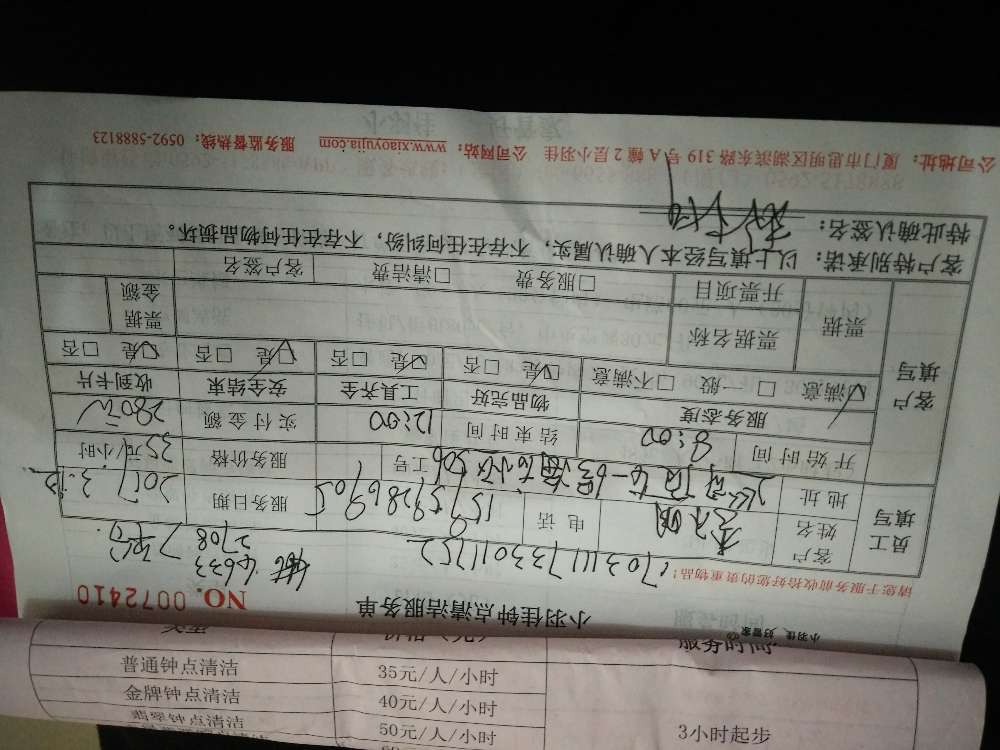 小羽佳、好管家
小羽佳钟点清洁服务单 NO. 0072410
请您于服务前收拾好您的贵重物品!
17031117330101752
4633
2708
员工填写
客户姓名 电话 15759286905 服务日期 2017.3.12
地址 工号 服务价格 35元/小时
开始时间 8:00 结束时间 12:00 实付金额 280元
客户填写
服务态度 物品完好 工具齐全 安全结束 收到卡片
☑满意 □一般 □不满意 ☑是 □否 ☑是 □否 ☑是 □否 ☑是 □否
票据 票据名称 票据金额
开票项目 □服务费 □清洁费 客户签名
客户特别承诺:以上填写经本人确认属实,不存在任何纠纷,不存在任何物品损坏。
特此确认签名:
公司地址:厦门市思明区湖滨东路 319 号 A 幢 2 层小羽佳 公司网站:www.xiaoyujia.com 服务监督热线:0592-5888123
服务时间
普通钟点清洁 35元/人/小时
金牌钟点清洁 40元/人/小时
翡翠钟点清洁 50元/人/小时
3小时起步